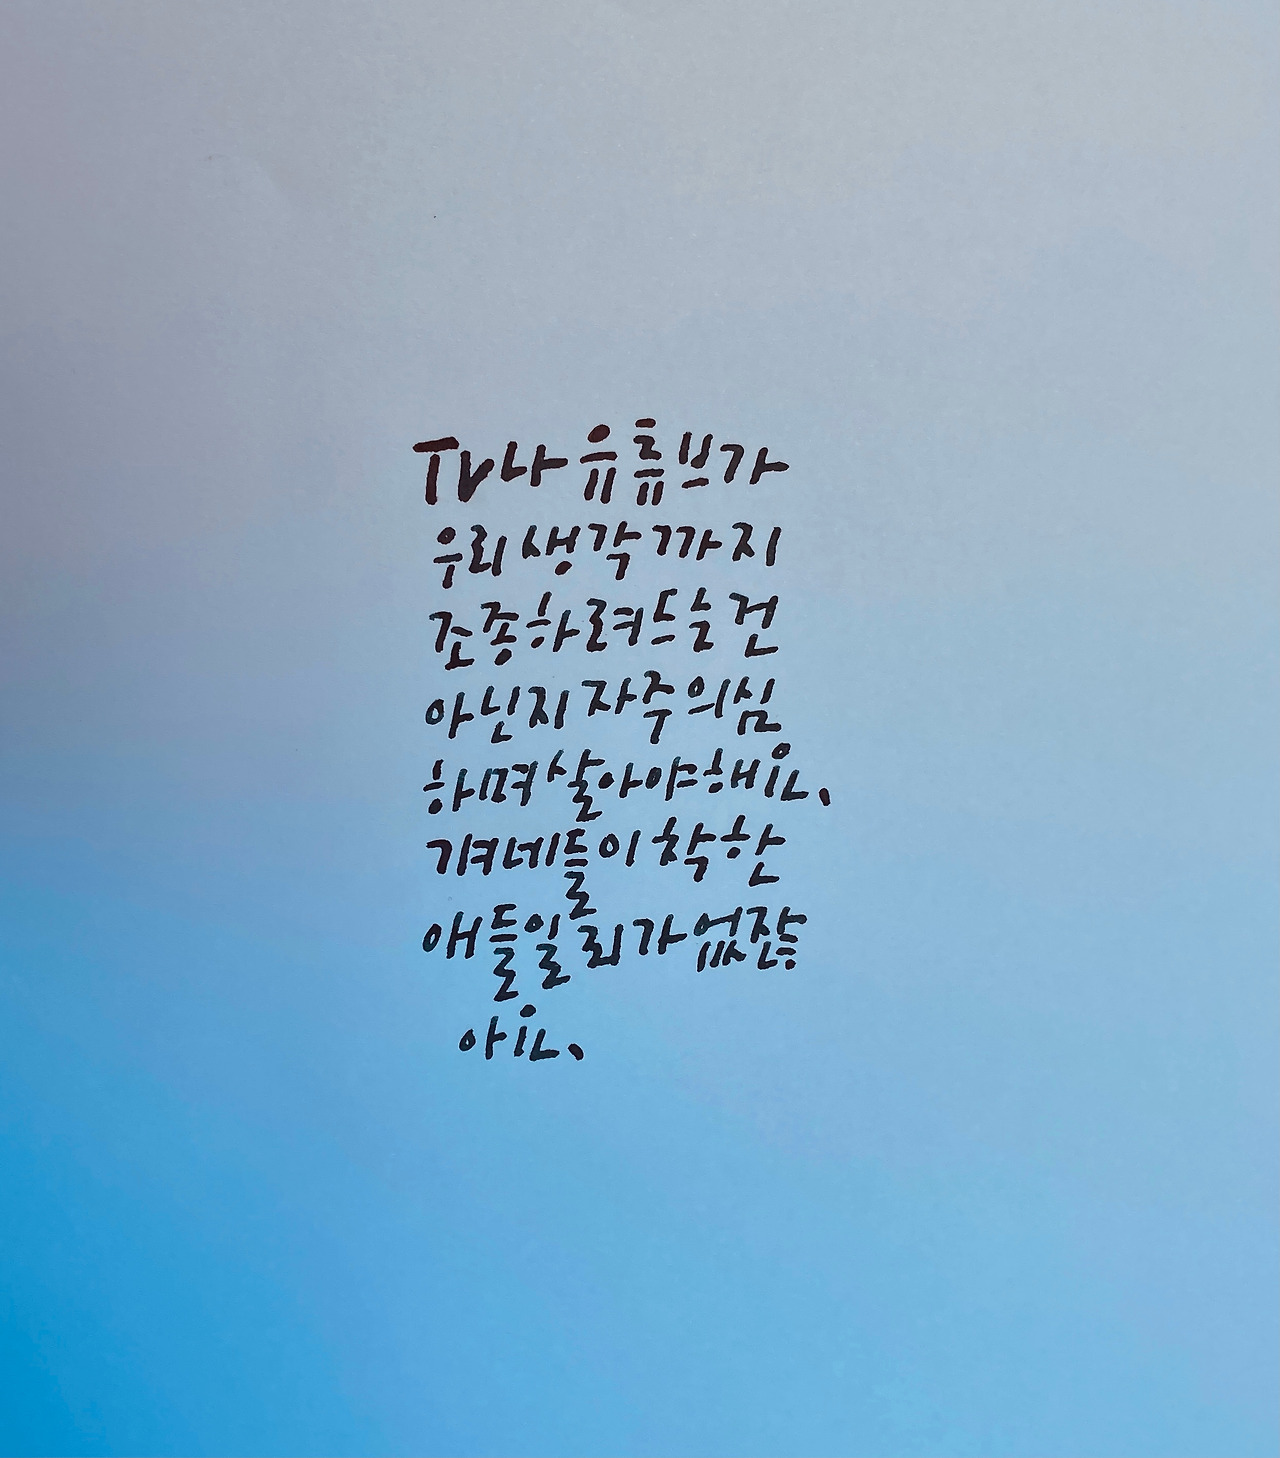 TV나 유튜브가
우리 생각까지
조종하려드는 건
아닌지 자주 의심
하며 살아야 해요.
겨네들이 착한
애들일 리가 없잖
아요.